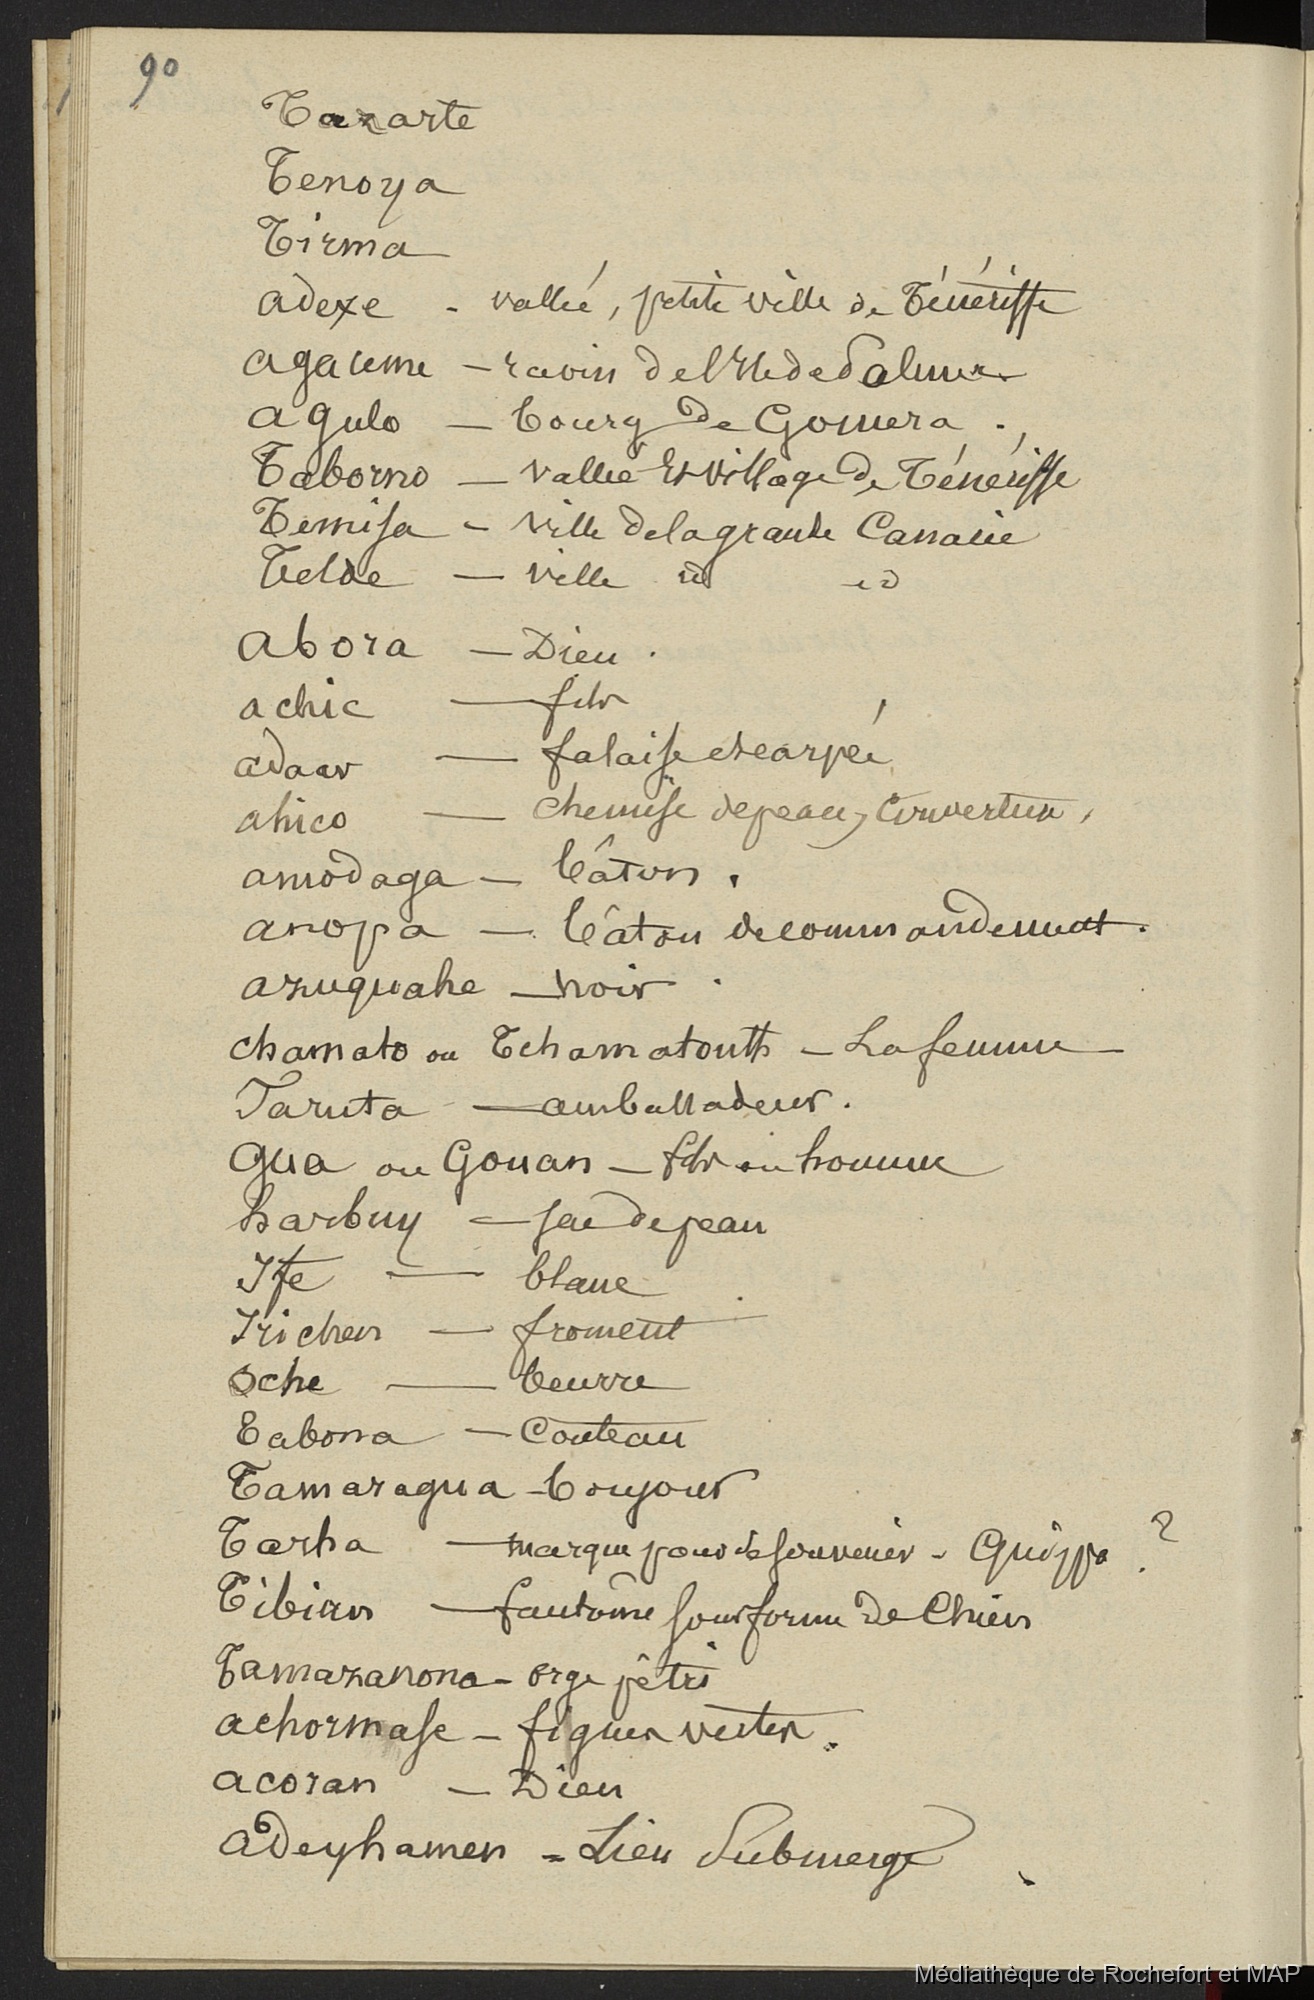 90
Tazarte
Tenoya
Tirma
adexe - vallée, petite ville de Ténériffe
agacume - ravin de l'Ile de Palma
agulo - bourg de Gomera.
Taborno - vallée et village de Ténériffe
Temisa - ville de la grande Canarie
Telde - ville id id
abora - Dieu.
achic - fils
adaar - falaise escarpée
ahico - chemise de peau, couverture,
amodaga - bâton.
anopa - bâton de commandement.
azuquahe - noir.
chamato ou Tchamatouth - La femme
Faruta - ambassadeur.
gua ou Gouan - fils ou homme
harbuy - sac de peau
Ife - blanc
Irichen - froment
oche - beurre
Tabona - Couteau
Tamaragua - bonjour
Tarha - marque pour se souvenir - Quippo ?
Tibicen - fantôme sous forme de Chien
Tamazanona - orge pêtri
achormase - figues vertes.
acoran - Dieu
adeyhamen = Lieu Submergé
Médiathèque de Rochefort et MAP